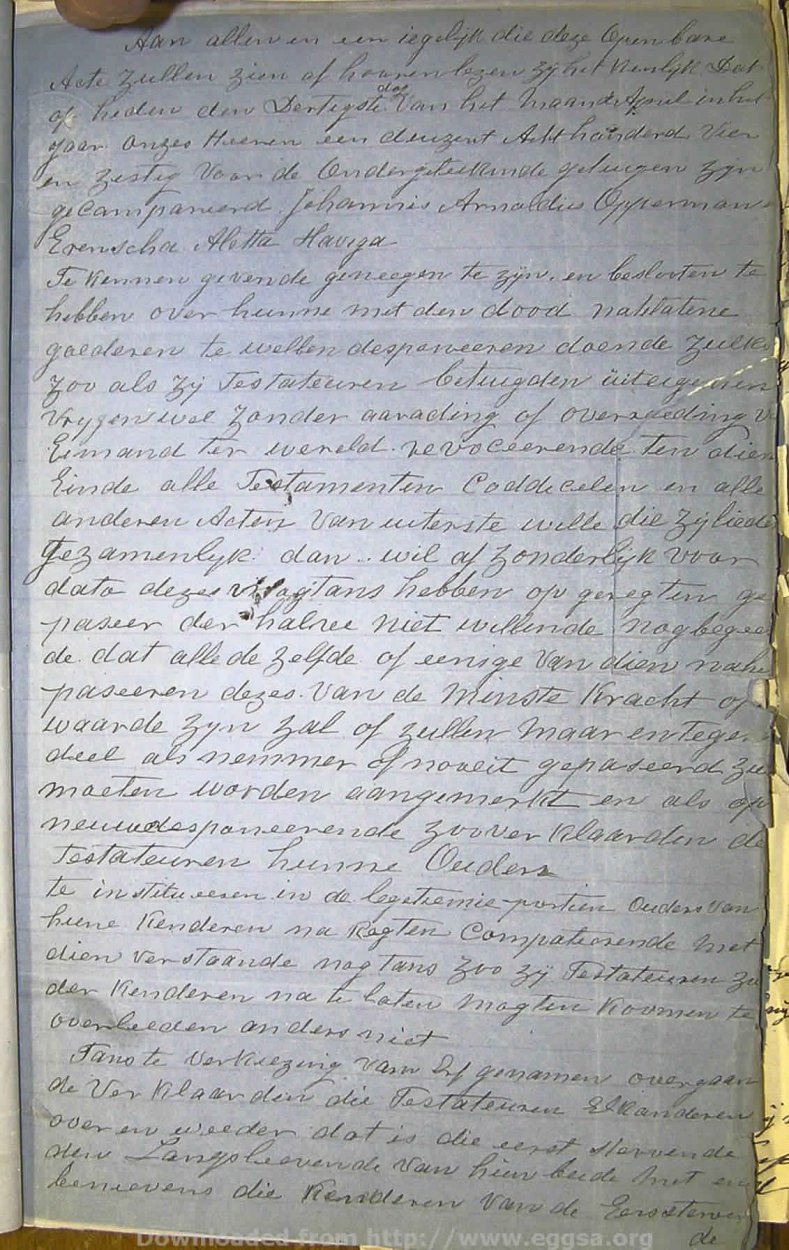 Aan allen en een iegelijk die deze Openbare
Acte Zullen zien of hooren lezen zy het Kenlyk Dat
op heden den Dertigste dag Van het Maand April in het
Jaar Onzes Heeren een duizent Acht honderd Vier
en Zestig Voor de Ondergeteekende getuigen zyn
gecampareerd Johannis Arnoldus Opperman
Aletta Haviga
Te Kennen gevende geneegen te zyn en besloten te
hebben over hunne met den dood natelatene
goederen te wellen desponeeren doende Zulks
zoo als Zy Testateuren betuigden uit eigenen
Vryen wel Zonder aanrading of overreeding
Eimand ter wereld revoceerende ten dien
Einde alle Testamenten Coddecelen en alle
anderen Acten Van uiterste wille die Zy liede
Gezamenlyk dan wil of Zonderlyk voor
data dezes hebben op geregten ge
paseer der halve Niet willende nog begee
de dat alle de Zelfde of eenige Van dien nahe
paseeren dezes Van de Minste Kracht of
waarde zyn Zal of Zullen Maar en tegen
deel als nemmer of nooeit gepaseerd zu
moeten worden aangemerkt en als op
neuwdesponeerende Zoo ver Klaarden de
Testateuren hunne Ouders
te institueeren in de legetiemie portien Ouders Van
hune Kenderen na Regten Compateerende met
dien verstaande nog tans Zoo zy Testateuren Zu
der Kenderen na te laten Mogten Koomen te
overleeden anders niet
Tans te Verkiezing Van Erf genamen overgaan
de Ver Klaarden die Testateuren Elkanderen
over en weeder dat is die eerst Stervende
den Langsleevende Van hun beide met en
benievens die Kenderen Van de Eerststerven
de
Downloaded from http://www.eggsa.org